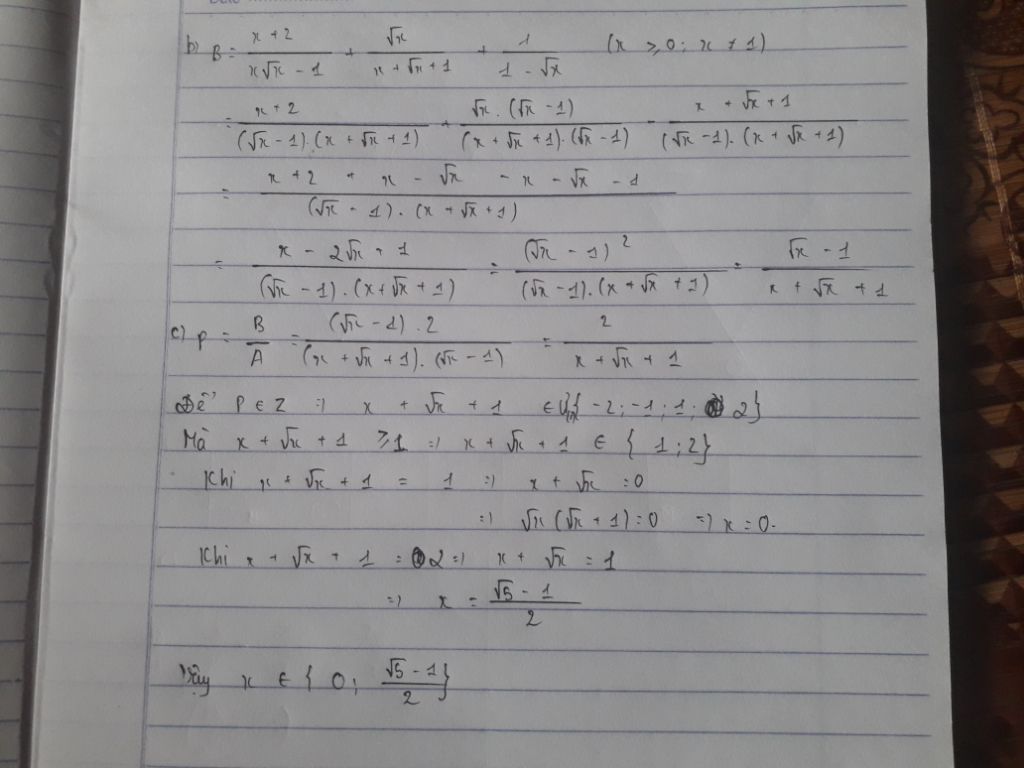 b) B = (x + 2)/(x√x - 1) + √x/(x + √x + 1) + 1/(1 - √x) (x ⩾ 0; x ≠ 1)
= (x + 2)/((√x - 1).(x + √x + 1)) + (√x.(√x - 1))/((x + √x + 1).(√x - 1)) - (x + √x + 1)/((√x - 1).(x + √x + 1))
= (x + 2 + x - √x - x - √x - 1)/((√x - 1).(x + √x + 1))
= (x - 2√x + 1)/((√x - 1).(x + √x + 1)) = (√x - 1)²/((√x - 1).(x + √x + 1)) = (√x - 1)/(x + √x + 1)
c) P = B/A = ((√x - 1).2)/((x + √x + 1).(√x - 1)) = 2/(x + √x + 1)
Để P ∈ Z => x + √x + 1 ∈ { -2; -1; 1; 2}
Mà x + √x + 1 ⩾ 1 => x + √x + 1 ∈ { 1; 2}
Khi x + √x + 1 = 1 => x + √x = 0
=> √x (√x + 1) = 0 => x = 0.
Khi x + √x + 1 = 2 => x + √x = 1
=> x = (√5 - 1)/2
Vậy x ∈ { 0; (√5 - 1)/2}